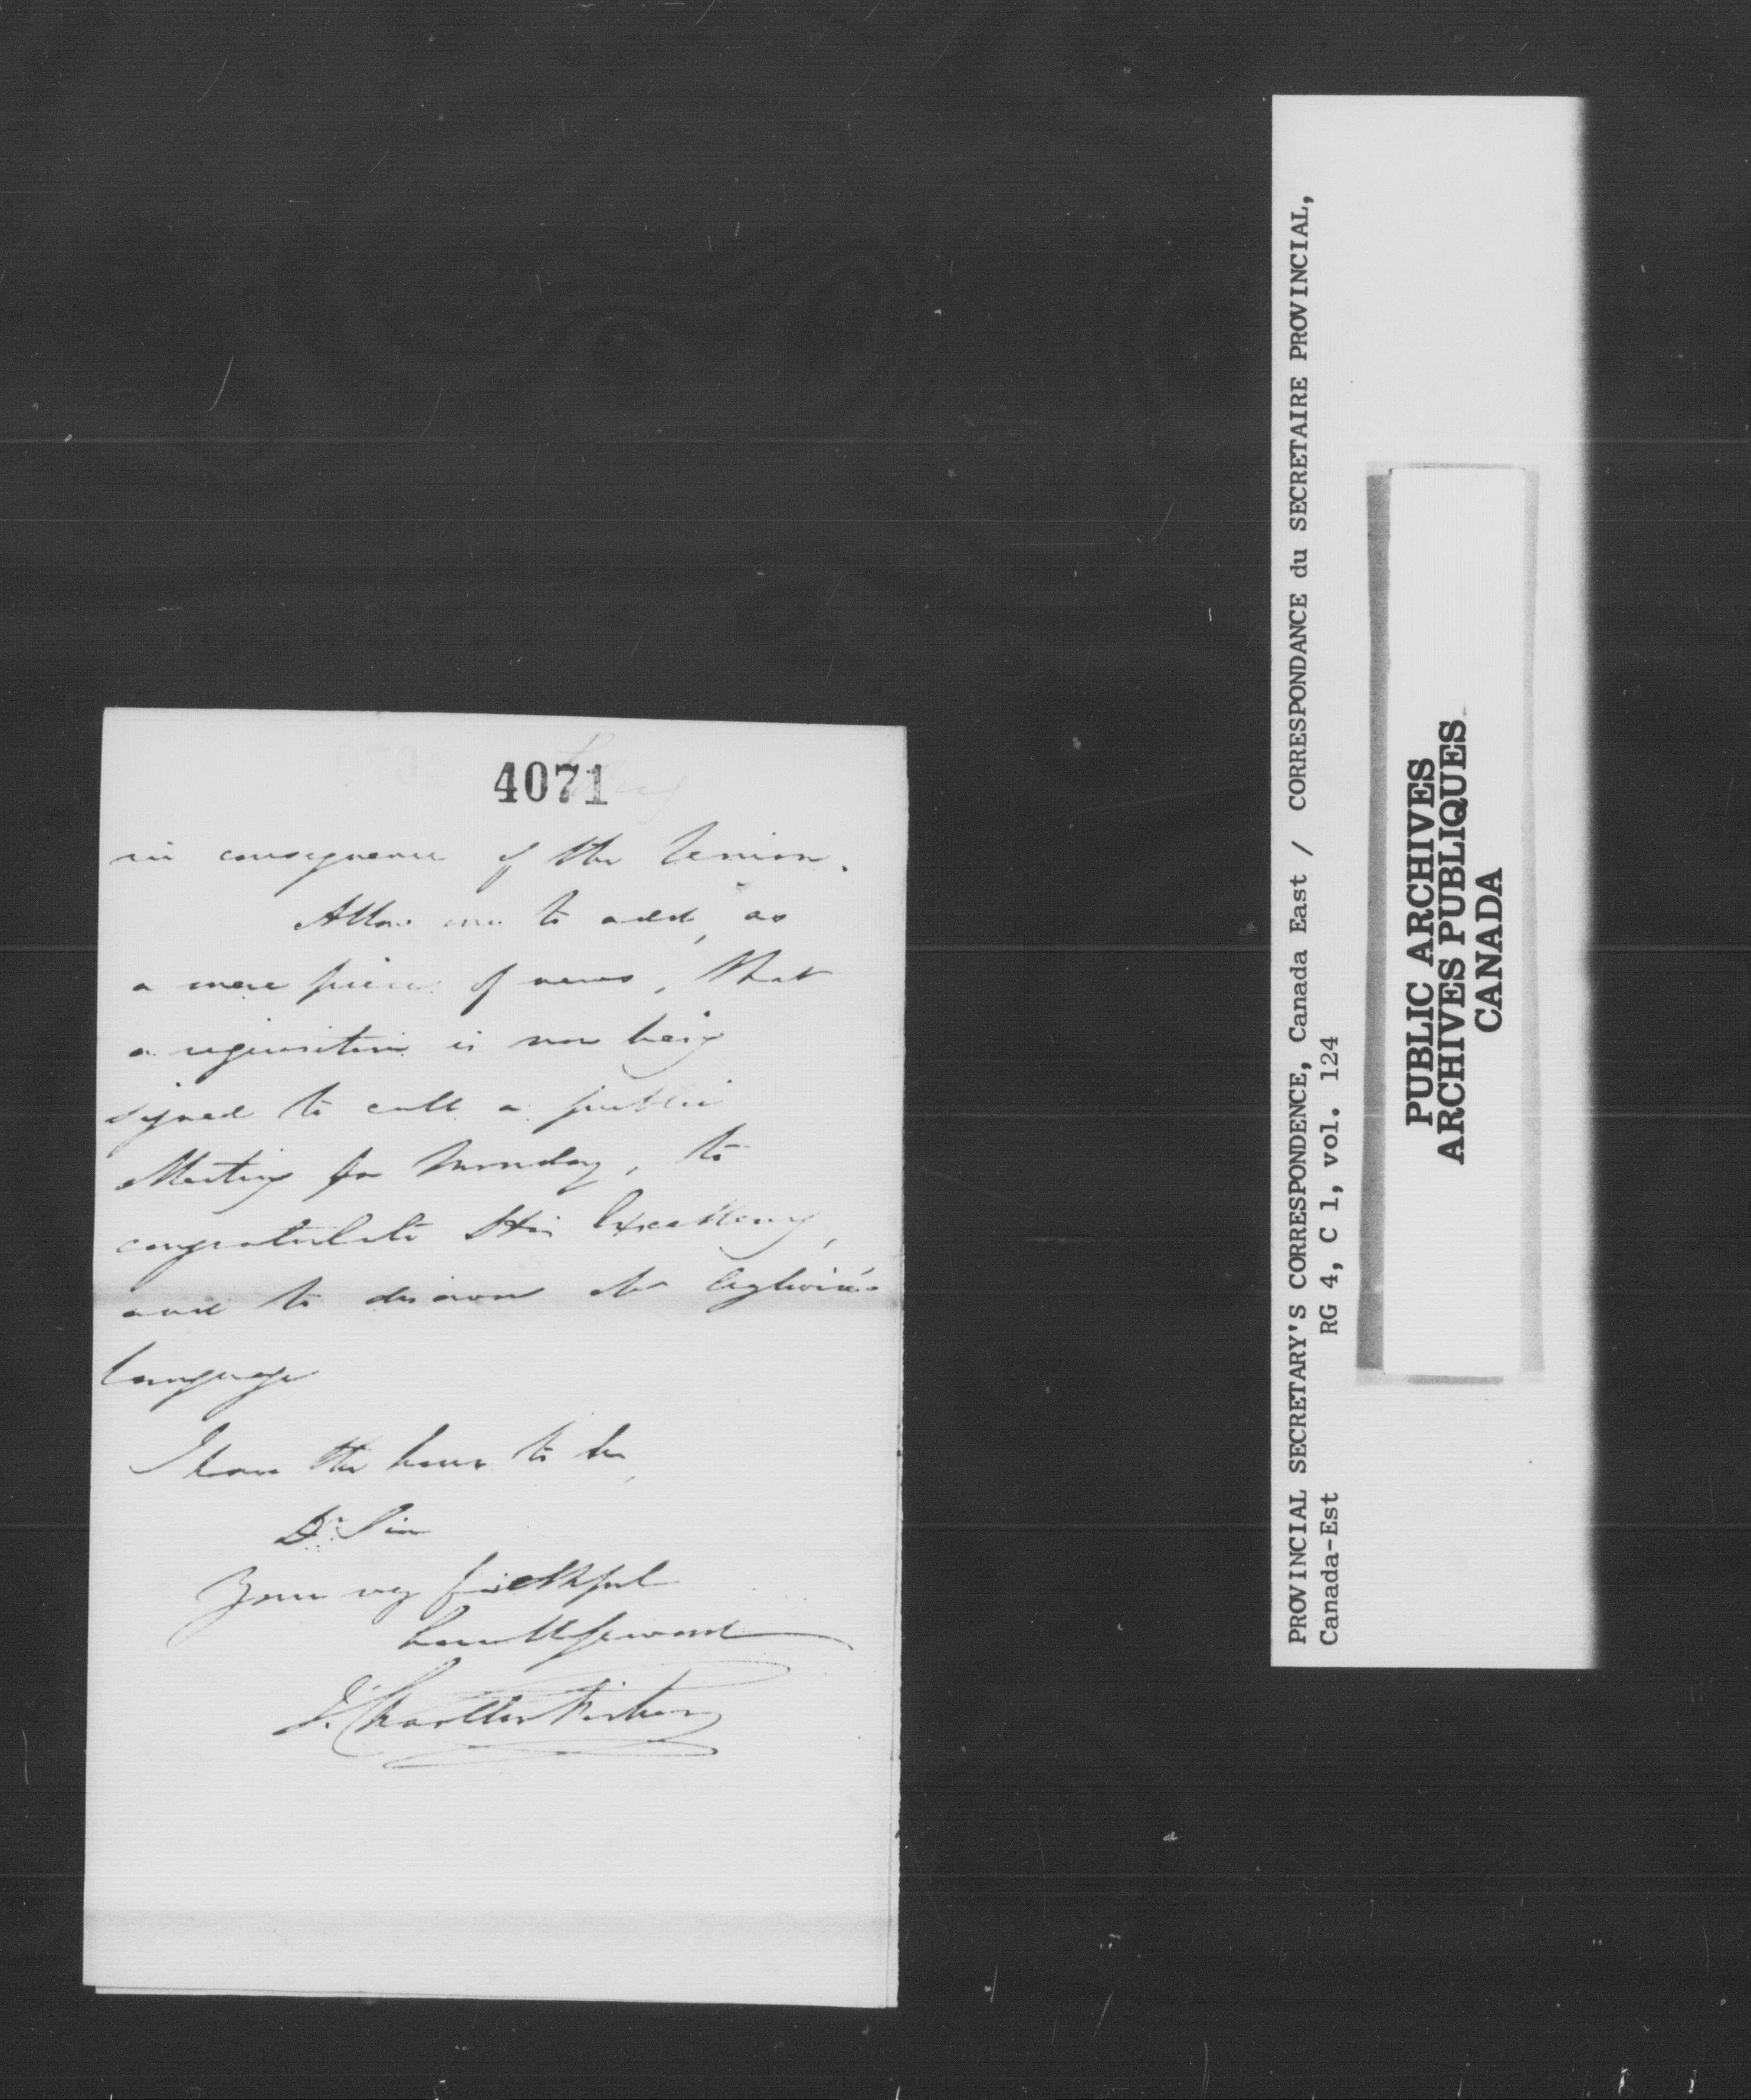 4071
in consequence of the Union.
Allow me to add, as
a mere piece of news, that
a requisition is now being
signed to call a public
Meeting for Monday, to
congratulate His Excellency,
and to disavow Mr
language
I have the honor to be,
Dr Sir
Your very faithful
humble servant
J. Charlton Fisher
PROVINCIAL SECRETARY'S CORRESPONDENCE, Canada East / CORRESPONDANCE du SECRETAIRE PROVINCIAL,
Canada-Est RG 4, C 1, vol. 124
PUBLIC ARCHIVES
ARCHIVES PUBLIQUES
CANADA